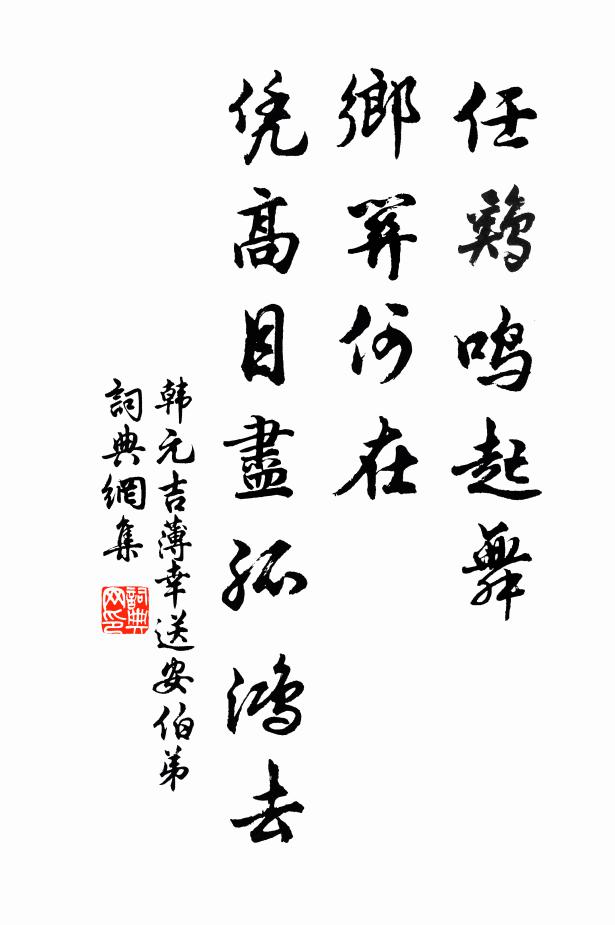 任鷄鳴起舞
鄉關何在
凭高目盡孤鴻去
韩元吉薄幸送安伯弟
詞典網集
詞典网印